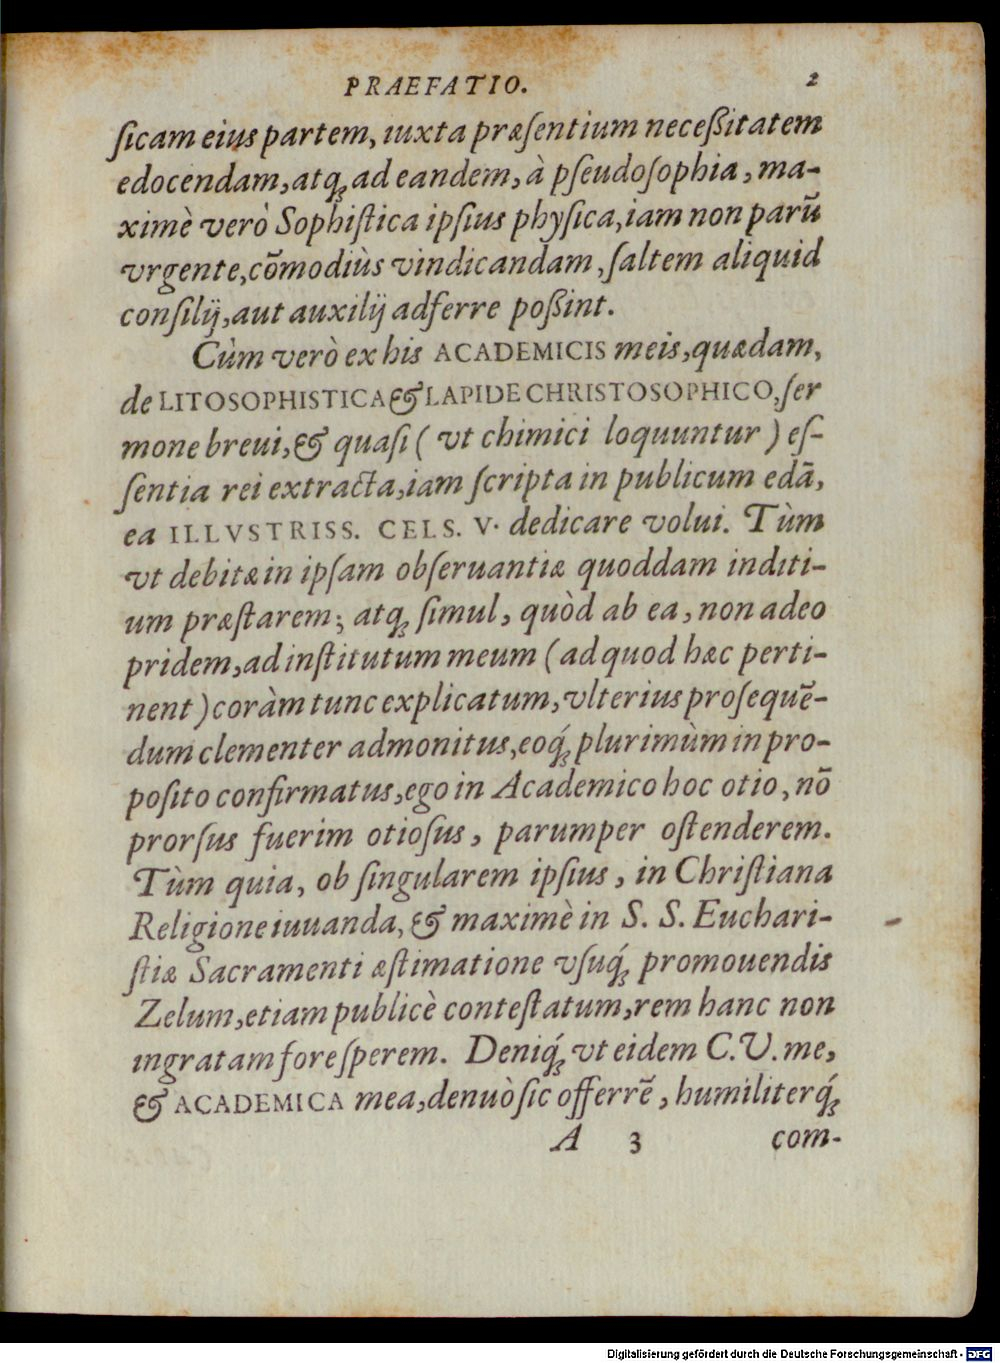 PRAEFATIO. 2
ſicam eius partem, iuxta præſentium neceßitatem
edocendam, atq́ꝫ ad eandem, à pſeudoſophia, ma-
ximè verò Sophiſtica ipſius phyſica, iam non parũ
vrgente, cõmodiùs vindicandam, ſaltem aliquid
conſilij, aut auxilij adferre poßint.
Cùm verò ex his ACADEMICIS meis, quædam,
de LITOSOPHISTICA & LAPIDE CHRISTOSOPHICO, ſer
mone breui, & quaſi ( vt chimici loquuntur ) eſ-
ſentia rei extracta, iam ſcripta in publicum edã,
ea ILLVSTRISS. CELS. V. dedicare volui. Tùm
vt debitæ in ipſam obſeruantiæ quoddam inditi-
um præſtarem; atqꝫ ſimul, quòd ab ea, non adeo
pridem, ad inſtitutum meum ( ad quod hæc perti-
nent ) coràm tunc explicatum, vlterius proſequẽ-
dum clementer admonitus, eoq́ꝫ plurimùm in pro-
poſito confirmatus, ego in Academico hoc otio, nõ
prorſus fuerim otioſus, parumper oſtenderem.
Tùm quia, ob ſingularem ipſius, in Chriſtiana
Religione iuuanda, & maximè in S. S. Euchari-
ſtiæ Sacramenti æſtimatione vſuq́ꝫ promouendis
Zelum, etiam publicè conteſtatum, rem hanc non
ingratam fore ſperem. Deniq́ꝫ vt eidem C. V. me,
& ACADEMICA mea, denuò ſic offerrẽ, humiliterq́ꝫ
A 3 com-
Digitalisierung gefördert durch die Deutsche Forschungsgemeinschaft - DFG